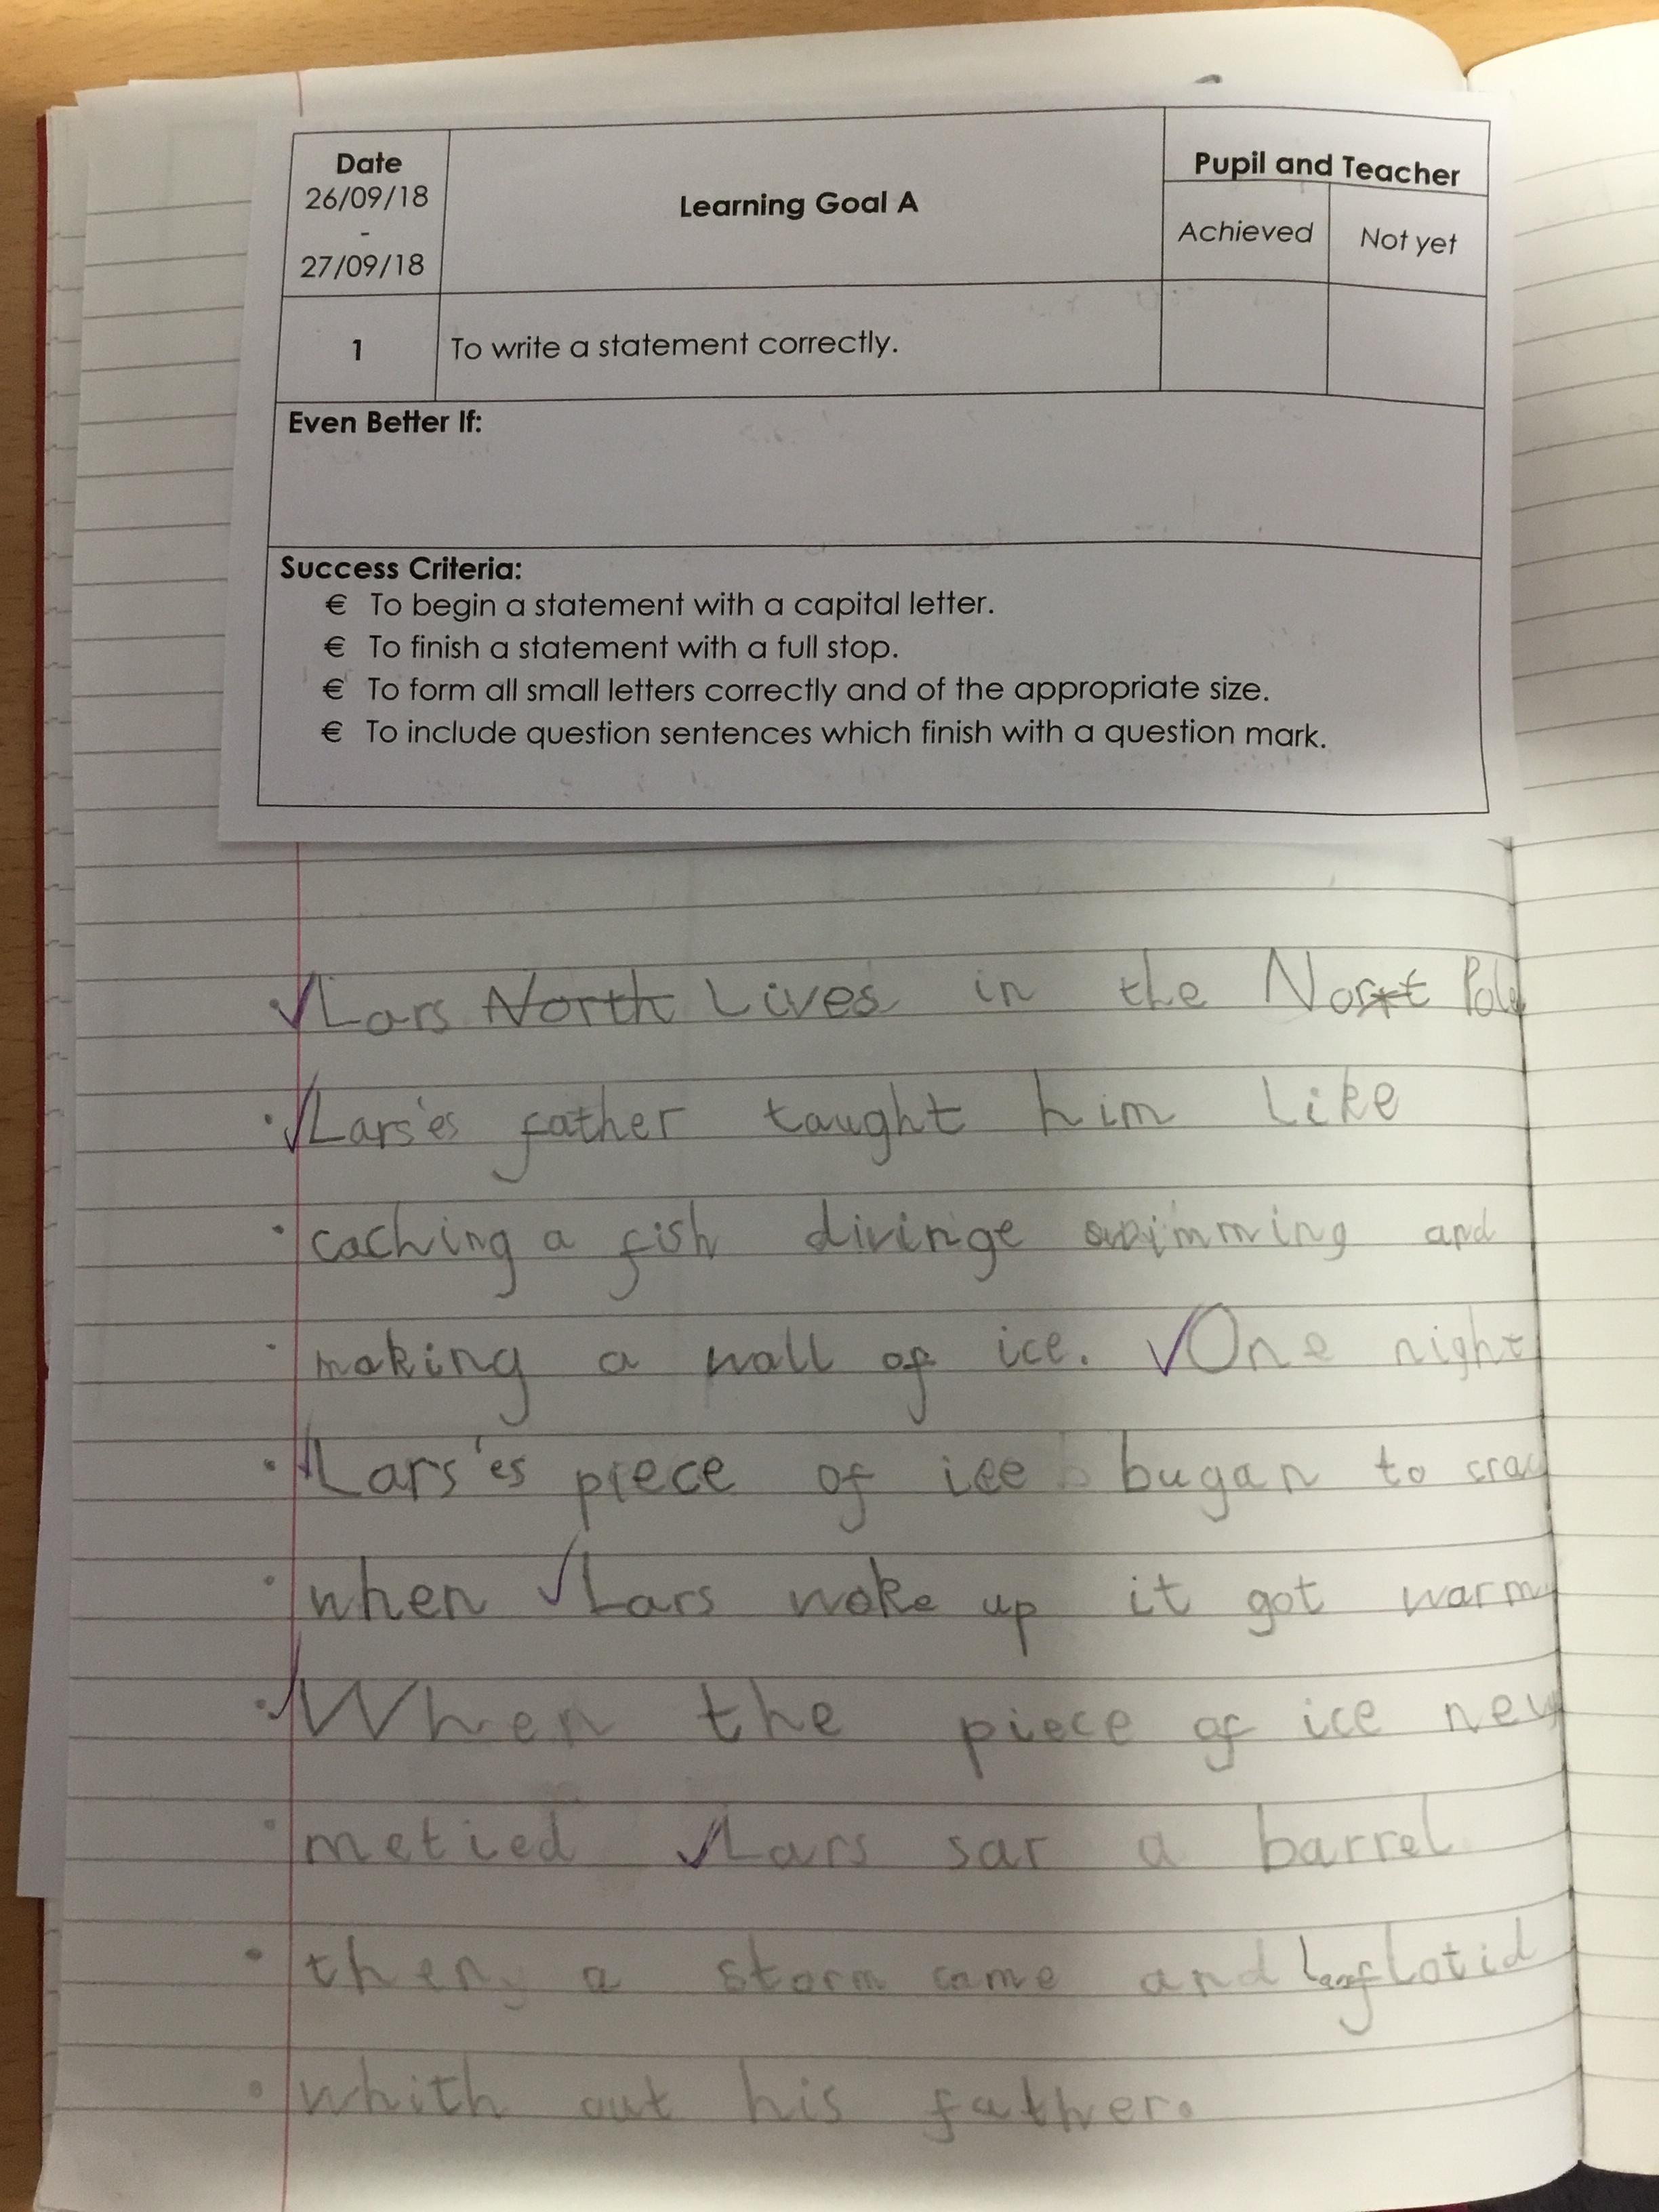 Date
26/09/18
-
27/09/18
Learning Goal A
Pupil and Teacher
Achieved
Not yet
1
To write a statement correctly.
Even Better If:
Success Criteria:
€ To begin a statement with a capital letter.
€ To finish a statement with a full stop.
€ To form all small letters correctly and of the appropriate size.
€ To include question sentences which finish with a question mark.
Lars North Lives in the Pole
Lars'es father taught him Like
caching a fish divinge swimming and
making a wall of ice. One night
Lars'es piece of ice bugan to
when Lars woke up it got warm
When the piece of ice
metied Lars sar a barrel
then a storm came and Lars flotid
whith out his father.